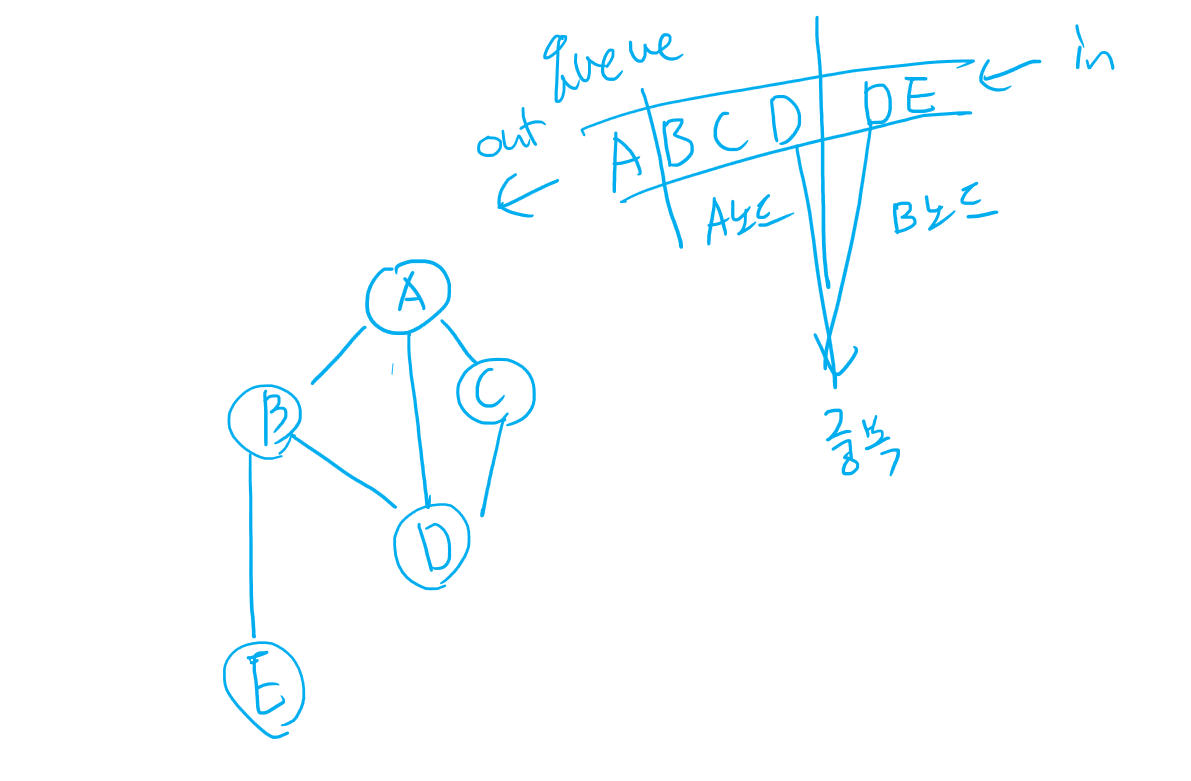 Queue
in
out
A B C D D E
A노드
B노드
중복
A
B
C
D
E